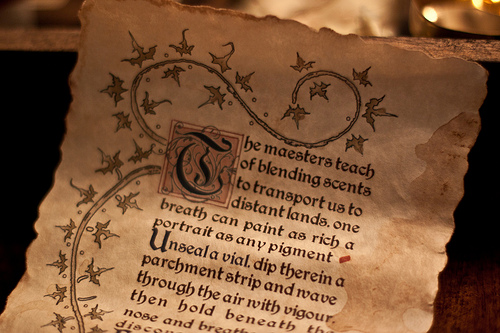 The maesters teach
of blending scents
to transport us to
distant lands. one
breath can paint as rich a
portrait as any pigment
Unseal a vial, dip therein a
parchment strip and wave
through the air with vigour,
then hold beneath the
nose and breath